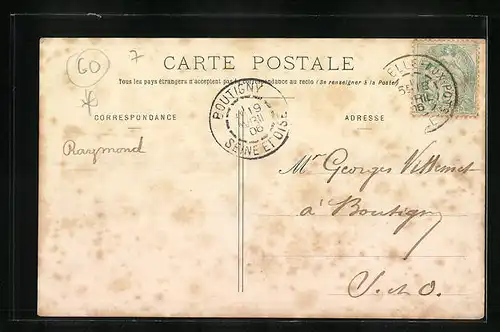 60
7
CARTE POSTALE
Tous les pays étrangers n'acceptent pas la correspondance au recto (Se renseigner à la Poste)
BOUTIGNY
19
AVRIL
06
SEINE ET OISE
CORRESPONDANCE
ADRESSE
Raymond
Mr Georges Villemet
à Boutigny
S. & O.